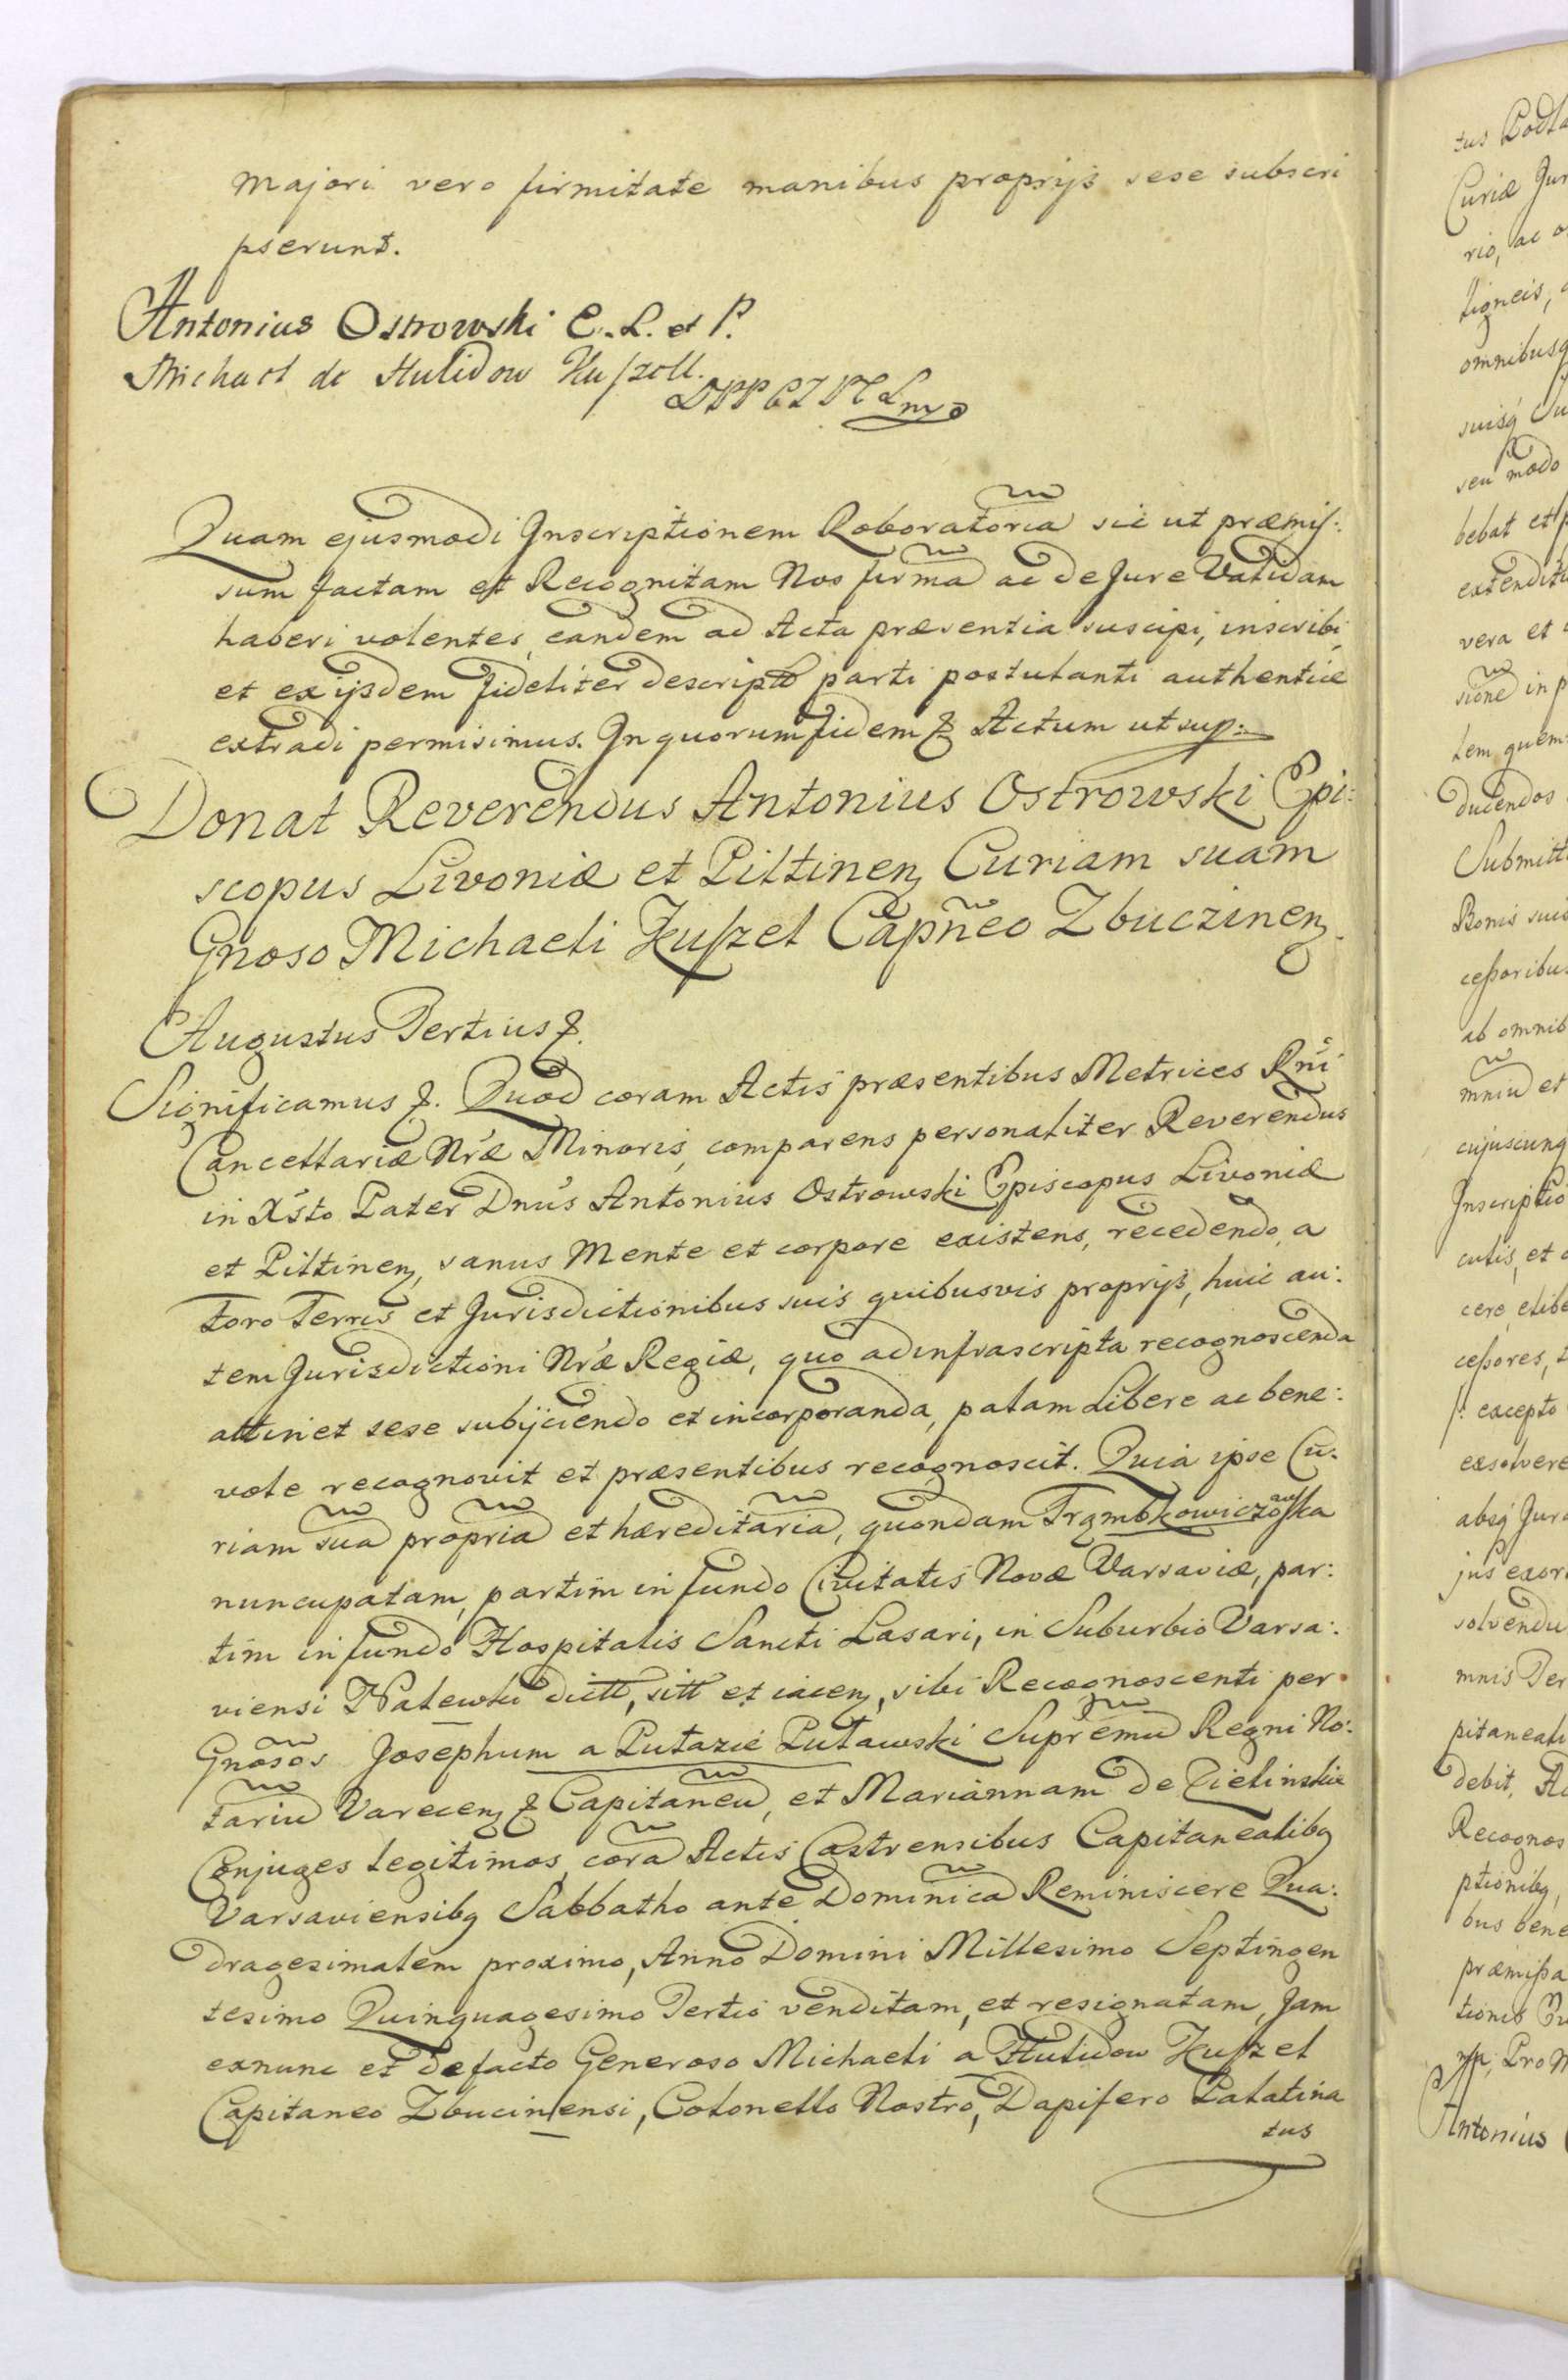 majori vero firmitate manibus proprijs sese subscri
pserunt.
Antonius Ostrowski E. L. et P.
Michael de Hulidow
Quam ejusmodi Inscriptionem Roboratoria sic ut præmis:
sum factam et Recognitam Nos firma ac de Jure Validam
haberi volentes, eandem ad Acta præsentia suscipi, inscribi,
et ex ijsdem fideliter descript parti postulanti authentice
extradi permisimus. In quorum fidem & Actum ut sup:
Donat Reverendus Antonius Ostrowski Epi:
scopus Livoniæ et Piltinen Curiam suam
Gnoso Michaeli Kuszel Capneo Zbuczinen.
Augustus Tertius &.
Significamus &. Quod coram Actis præsentibus Metrices Rni
Cancellariæ Nræ Minoris, comparens personaliter Reverendus
in Xsto Pater Dnus Antonius Ostrowski Episcopus Livoniæ
et Piltinen, sanus Mente et corpore existens, recedendo, a
Foro Terris et Jurisdictionibus suis quibusvis proprijs, huic au:
tem Jurisdictioni Nræ Regiæ, quo ad infrascripta recognoscenda
attinet sese subijciendo et incorporanda, palam Libere ac bene:
vole recognovit et præsentibus recognoscit. Quia ipse Cu:
riam sua propria et hæreditaria, quondam
nuncupatam, partim in fundo Civitatis Novæ Varsaviæ, par:
tim in fundo Hospitalis Sancti Lasari, in Suburbio Varsa:
viensi Nalewki dictt, sitt et iacen, sibi Recognoscenti per
Gnosos Josephum a Putazie Putawski Supremu Regni No:
tariu Varecen & Capitaneu, et Mariannam de Zielinskie
Conjuges legitimos, cora Actis Castrensibus Capitanealibq
Varsaviensibq Sabbatho ante Dominica Reminiscere Qua:
dragesimalem proximo, Anno Domini Millesimo Septingen
tesimo Quinquagesimo Tertio venditam, et resignatam, Jam
exnunc et de facto Generoso Michaeli a Hulidow Kuszel
Capitaneo Zbucinensi, Colonello Nostro, Dapifero Palatina
tus
tus
Curiæ Jur
rio, ac
ligneis,
omnibusq
suisq
seu modo
bebat et
vera et
sione in p
tem, quem
ducendos
Submitt
Bonis suis
cessoribus
ab omnib
mniu et
cujuscunq
Inscriptio
cutis, et
cere, et libe
cessores,
excepto
exsolvere
absq Jura
jus
solvendu
mnis Ter
pitaneati
debit.
Recognos
ptionibq,
bus bene
præmissa
tionis
Pro
Antonius